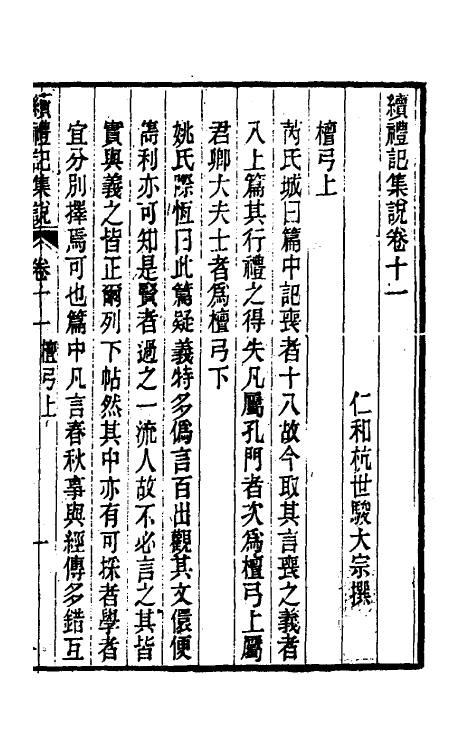 續禮記集說卷十一
仁和杭世駿大宗撰
檀弓上
芮氏城曰篇中記喪者十八故今取其言喪之義者
入上篇其行禮之得失凡屬孔門者次為檀弓上屬
君卿大夫士者為檀弓下
姚氏際恆曰此篇疑義特多偽言百出觀其文儇便
雋利亦可知是賢者過之一流人故不必言之其皆
實與義之皆正爾列下帖然其中亦有可採者學者
宜分別擇焉可也篇中凡言春秋事與經傳多錯互
續禮記集說 卷十一 檀弓上 一